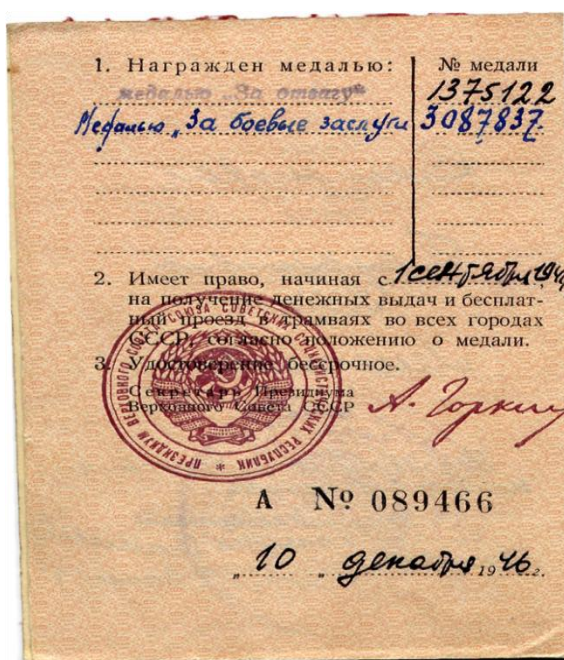 1. Награжден медалью: № медали
медалью „За отвагу“ 1375122
Медалью „За боевые заслуги 3087837
2. Имеет право, начиная с 1 сентября 194
на получение денежных выдач и бесплат-
ный проезд в трамваях во всех городах
СССР, согласно положению о медали.
3. Удостоверение бессрочное.
Секретарь Президиума
Верховного Совета СССР А. Горкин
ПРЕЗИДИУМ ВЕРХОВНОГО СОВЕТА СОЮЗА СОВЕТСКИХ СОЦИАЛИСТИЧЕСКИХ РЕСПУБЛИК *
А № 089466
„10“ декабря 1946 г.